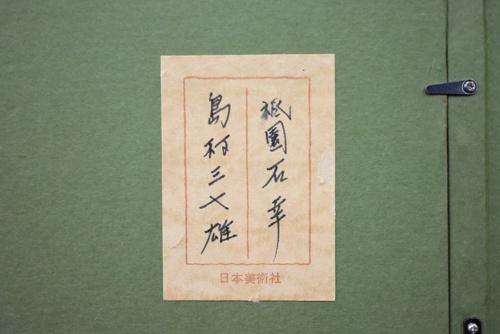 祇園石幸
島村三七雄
日本美術社